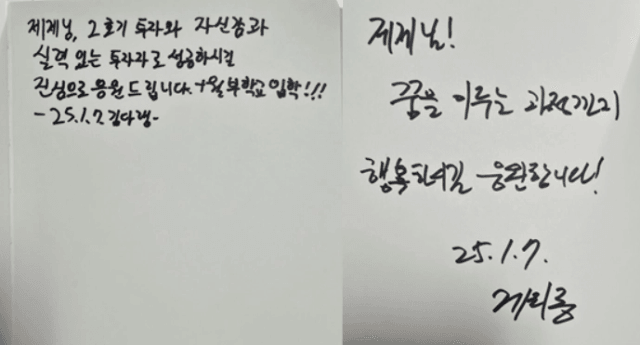 제제님, 2호기 투자와 자신감과
실력 있는 투자자로 성공하시길
진심으로 응원드립니다. +월부학교 입학!!!
-25.1.7 김다랭-
제제님!
꿈을 이루는 과정까지
행복하시길 응원합니다!
25.1.7.